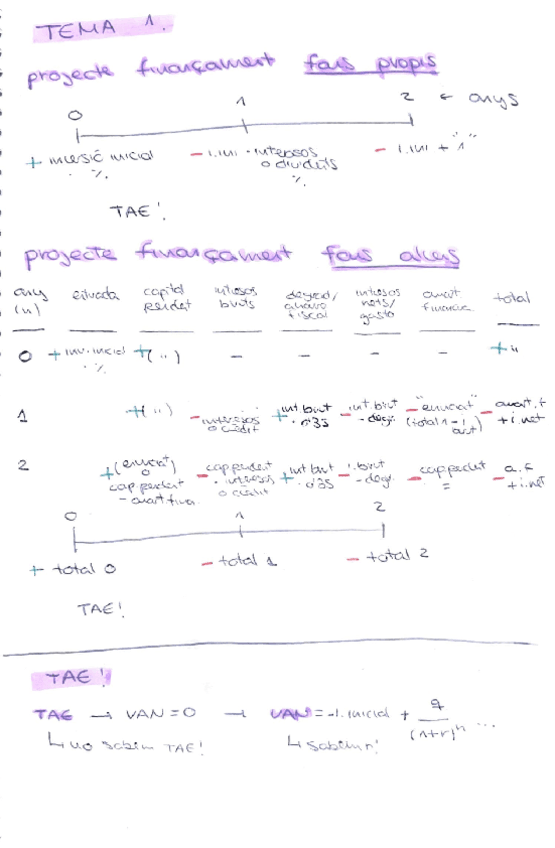 TEMA 1.
projecte finançament fons propis
0 1 2 ← anys
+ inversió inicial - i.ini · interessos - i.ini + " "
% o dividents 1
%
TAE!
projecte finançament fons aliens
any entrada capital interessos desgrav/ interessos amort total
(n) pendent bruts ahorro nets/ financera
fiscal gasto
0 + inv. inicial +( ") - - - - + "
%
1 +( ") - interessos + int. brut - int. brut - "enunciat" - amort. f
o crèdit · 0'35 - desgr. (total n - 1 + i. net
amort)
2 +(enunciat) - cap. pendent + int. brut - i. brut - cap pendent - a.f
o · interessos · 0'35 - desgr. = + i. net
cap. pendent o crèdit
- amort fina.
0 1 2
+ total 0 - total 1 - total 2
TAE!
TAE!
TAE → VAN = 0 → VAN = -I. inicial + q
(1+r)ⁿ ...
↳ no sabem TAE! ↳ sabem r!